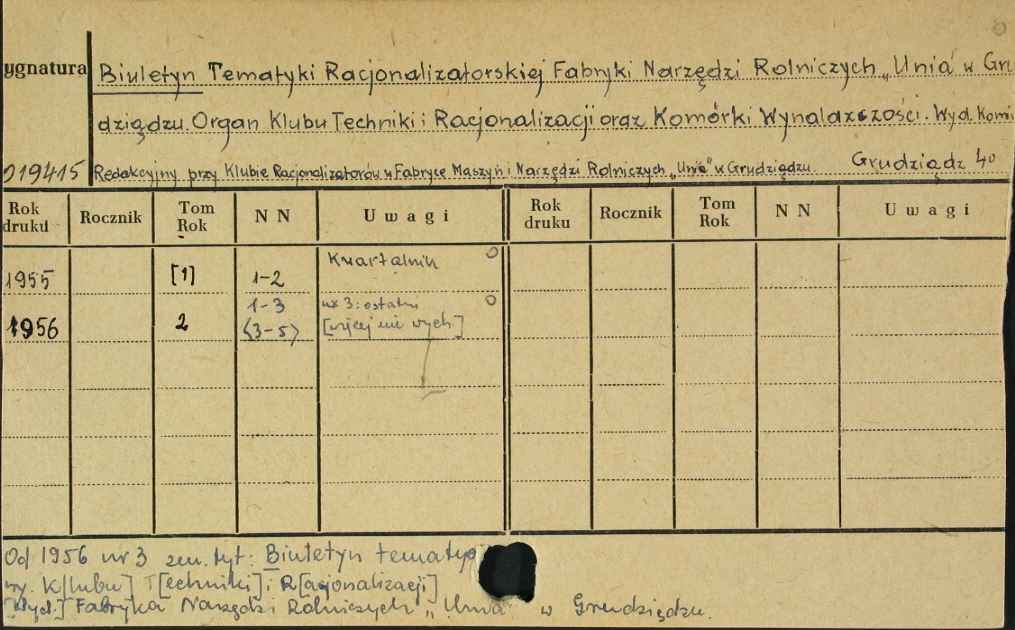 ygnatura Biuletyn Tematyki Racjonalizatorskiej Fabryki Narzędzi Rolniczych „Unia" w Gru
dziądzu. Organ Klubu Techniki i Racjonalizacji oraz Komórki Wynalazczości. Wyd. Komi
019415 Redakcyjny przy Klubie Racjonalizatorów w Fabryce Maszyn i Narzędzi Rolniczych „Unia" w Grudziądzu. Grudziądz 4°
Rok druku Rocznik Tom Rok NN Uwagi Rok druku Rocznik Tom Rok NN Uwagi
1955 [1] 1-2 Kwartalnik
1-3 nr 3: ostatni
1956 2 (3-5) [więcej nie wych]
Od 1956 nr 3 zm. tyt: Biuletyn tematycz
ny. K[lubu] T[echniki] i R[acjonalizacji]
[Wyd.] Fabryka Narzędzi Rolniczych „Unia" w Grudziądzu.